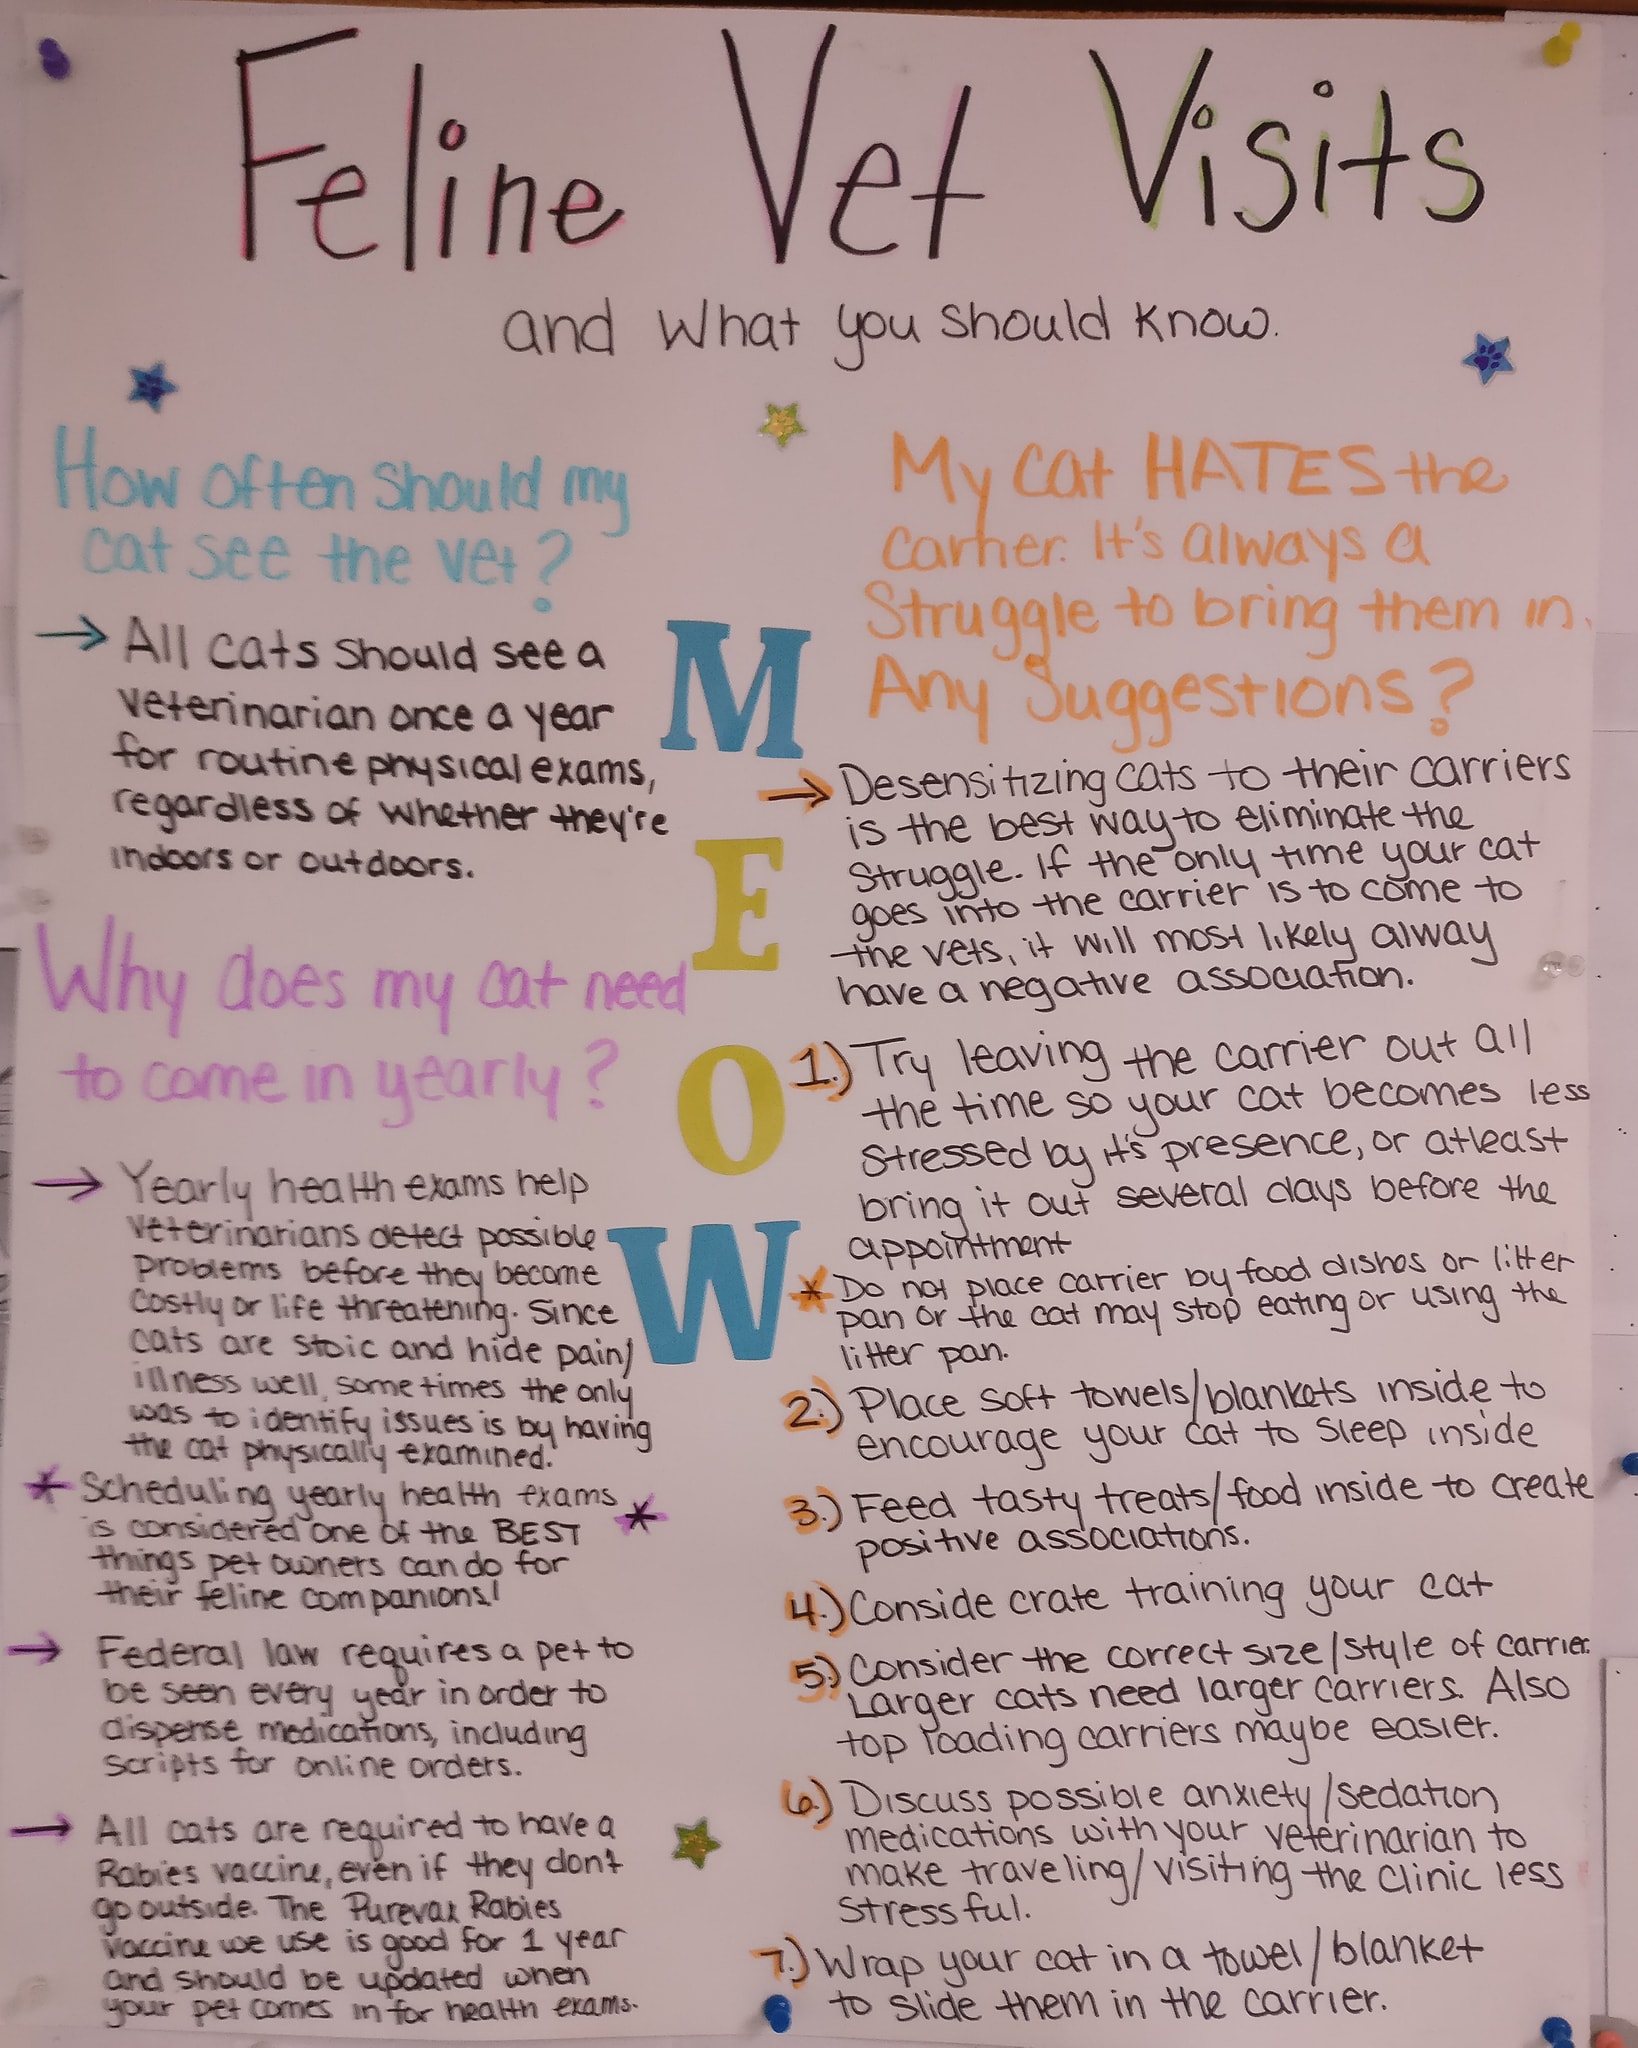 Feline Vet Visits
and what you should know.
How often should my
cat see the vet?
→ All cats should see a
veterinarian once a year
for routine physical exams,
regardless of whether they're
indoors or outdoors.
Why does my cat need
to come in yearly?
→ Yearly health exams help
veterinarians detect possible
problems before they become
costly or life threatening. Since
cats are stoic and hide pain/
illness well, sometimes the only
was to identify issues is by having
the cat physically examined.
* Scheduling yearly health exams *
is considered one of the BEST
things pet owners can do for
their feline companions!
→ Federal law requires a pet to
be seen every year in order to
dispense medications, including
scripts for online orders.
→ All cats are required to have a
Rabies vaccine, even if they don't
go outside. The Purevax Rabies
vaccine we use is good for 1 year
and should be updated when
your pet comes in for health exams.
M
E
O
W
My cat HATES the
carrier. It's always a
struggle to bring them in.
Any Suggestions?
→ Desensitizing cats to their carriers
is the best way to eliminate the
struggle. If the only time your cat
goes into the carrier is to come to
the vets, it will most likely alway
have a negative association.
1.) Try leaving the carrier out all
the time so your cat becomes less
stressed by it's presence, or atleast
bring it out several days before the
appointment
* Do not place carrier by food dishes or litter
pan or the cat may stop eating or using the
litter pan.
2.) Place soft towels/blankets inside to
encourage your cat to sleep inside
3.) Feed tasty treats/food inside to create
positive associations.
4.) Conside crate training your cat
5.) Consider the correct size/style of carrier.
Larger cats need larger carriers. Also
top loading carriers maybe easier.
6.) Discuss possible anxiety/sedation
medications with your veterinarian to
make traveling/visiting the clinic less
stressful.
7.) Wrap your cat in a towel/blanket
to slide them in the carrier.